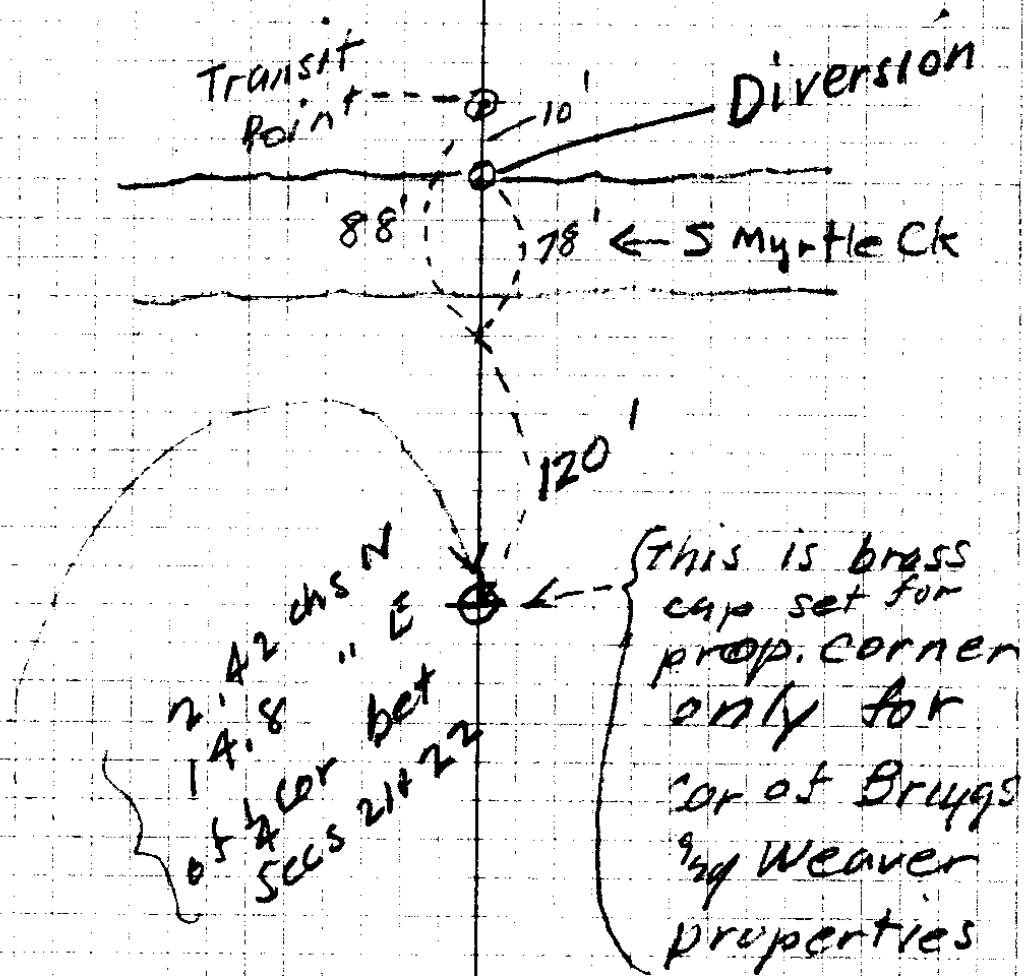 Transit
Point
10'
Diversion
88'
78' ← S Myrtle Ck
120'
2.42 chs N
14.8 " E
of 1/4 cor bet
Secs 21+22
this is brass
cap set for
prop. corner
only for
cor of
Weaver
properties